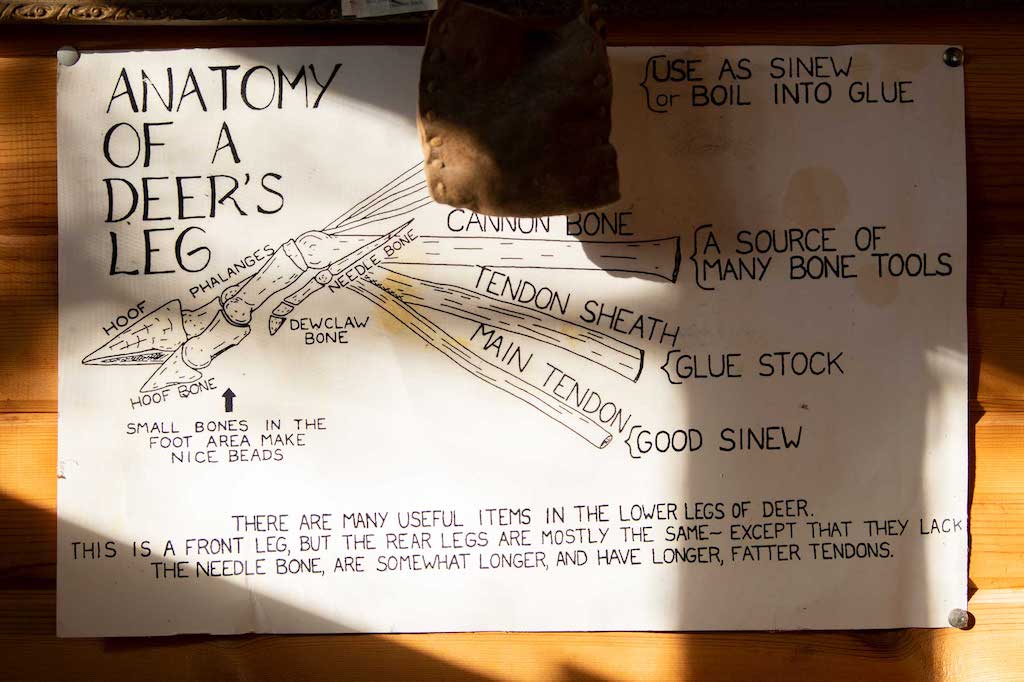 ANATOMY
OF A
DEER'S
LEG
{USE AS SINEW
or BOIL INTO GLUE
CANNON BONE
{A SOURCE OF
MANY BONE TOOLS
PHALANGES
NEEDLE BONE
HOOF
DEWCLAW
BONE
TENDON SHEATH
{GLUE STOCK
MAIN TENDON
{GOOD SINEW
HOOF BONE
SMALL BONES IN THE
FOOT AREA MAKE
NICE BEADS
THERE ARE MANY USEFUL ITEMS IN THE LOWER LEGS OF DEER.
THIS IS A FRONT LEG, BUT THE REAR LEGS ARE MOSTLY THE SAME~ EXCEPT THAT THEY LACK
THE NEEDLE BONE, ARE SOMEWHAT LONGER, AND HAVE LONGER, FATTER TENDONS.